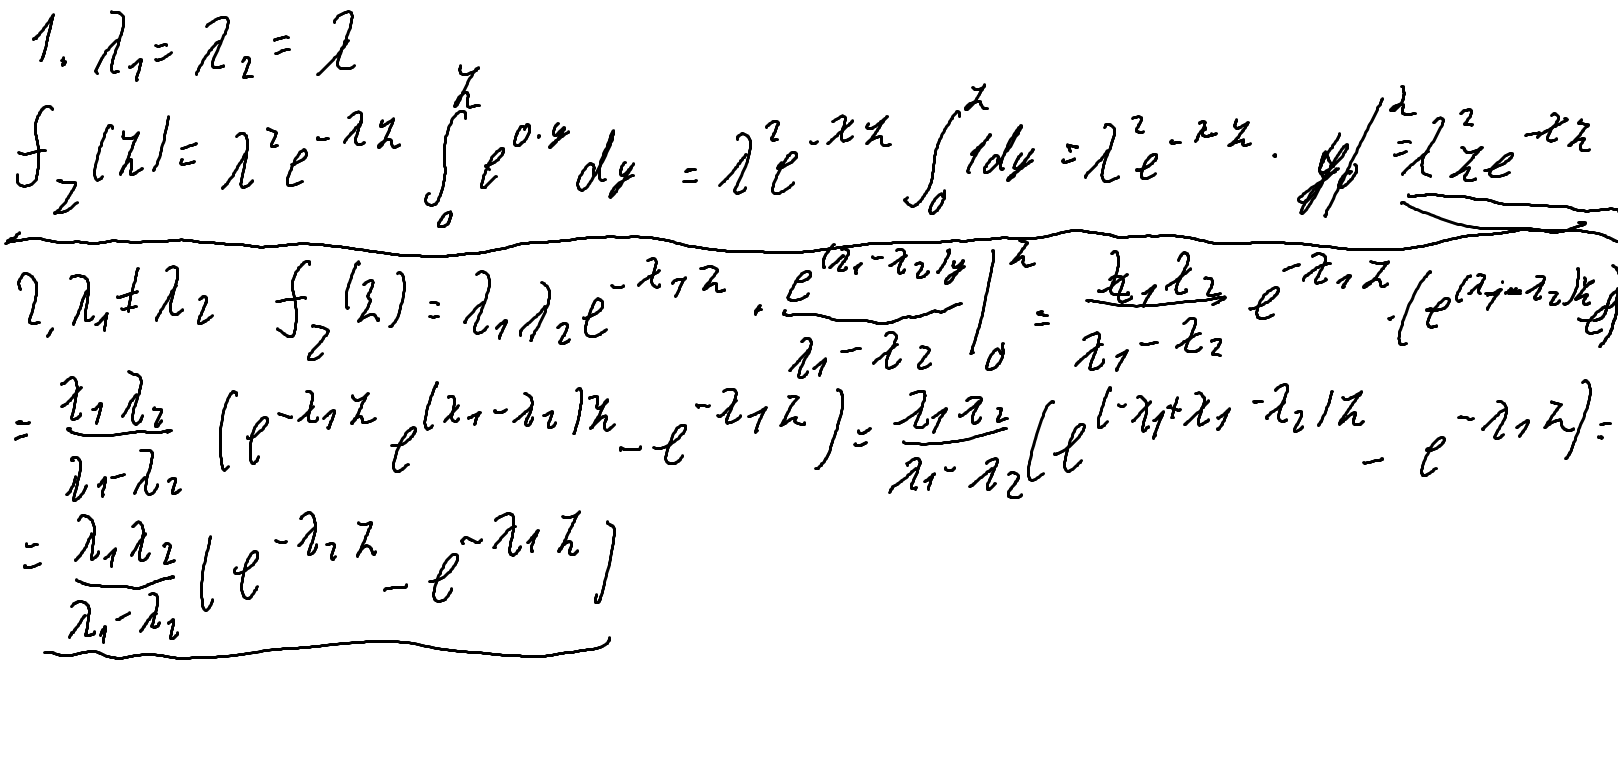 1. λ₁ = λ₂ = λ
f_Z(z) = λ² e^{-λz} ∫₀^z e^{0·y} dy = λ² e^{-λz} ∫₀^z 1 dy = λ² e^{-λz} · y|₀^z = λ² z e^{-λz}
2. λ₁ ≠ λ₂ f_Z(z) = λ₁λ₂ e^{-λ₁z} · \frac{e^{(λ₁-λ₂)y}}{λ₁-λ₂} |₀^z = \frac{λ₁λ₂}{λ₁-λ₂} e^{-λ₁z} · (e^{(λ₁-λ₂)z}
= \frac{λ₁λ₂}{λ₁-λ₂} (e^{-λ₁z} e^{(λ₁-λ₂)z} - e^{-λ₁z}) = \frac{λ₁λ₂}{λ₁-λ₂} (e^{(-λ₁+λ₁-λ₂)z} - e^{-λ₁z}) =
= \frac{λ₁λ₂}{λ₁-λ₂} (e^{-λ₂z} - e^{-λ₁z})